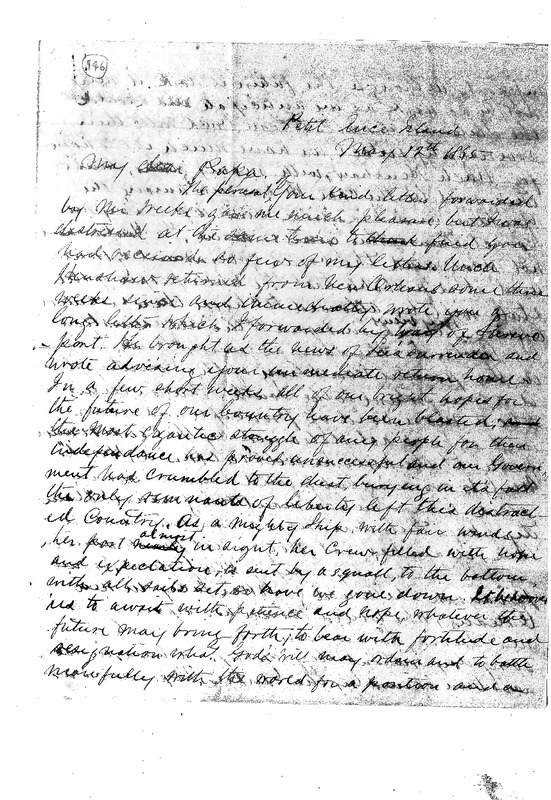 146
Petit Ance Island
May 12th 1865
My dear Papa,
The perusal your kind letters forwarded
by Mr Weeks gave me much pleasure but I was
distressed at the same time to find you
had received so few of my letters Uncle
returned from New Orleans some three
weeks since and immediately wrote you a
long letter which I forwarded by way of Shreve
port. He brought us the news of Lees surrender and
wrote advising your immediate return home
In a few short weeks all of our bright hopes for
the future of our Country have been blasted,
the most gigantic struggle of any people for their
independance has proved unsuccessful and our Govern
ment has crumbled to the dust burying in its fall
the only remnants of liberty left this distract
ed Country. As a mighty ship with fair winds
her port almost in sight, her Crew filled with hope
and expectation, is sent by a squall, to the bottom
with all sails set, so have we gone down. It behooves
us to await with patience and hope, whatever the
future may bring forth, to bear with fortitude and
resignation what God's will may ordain and to battle
manfully with the world for a position and a